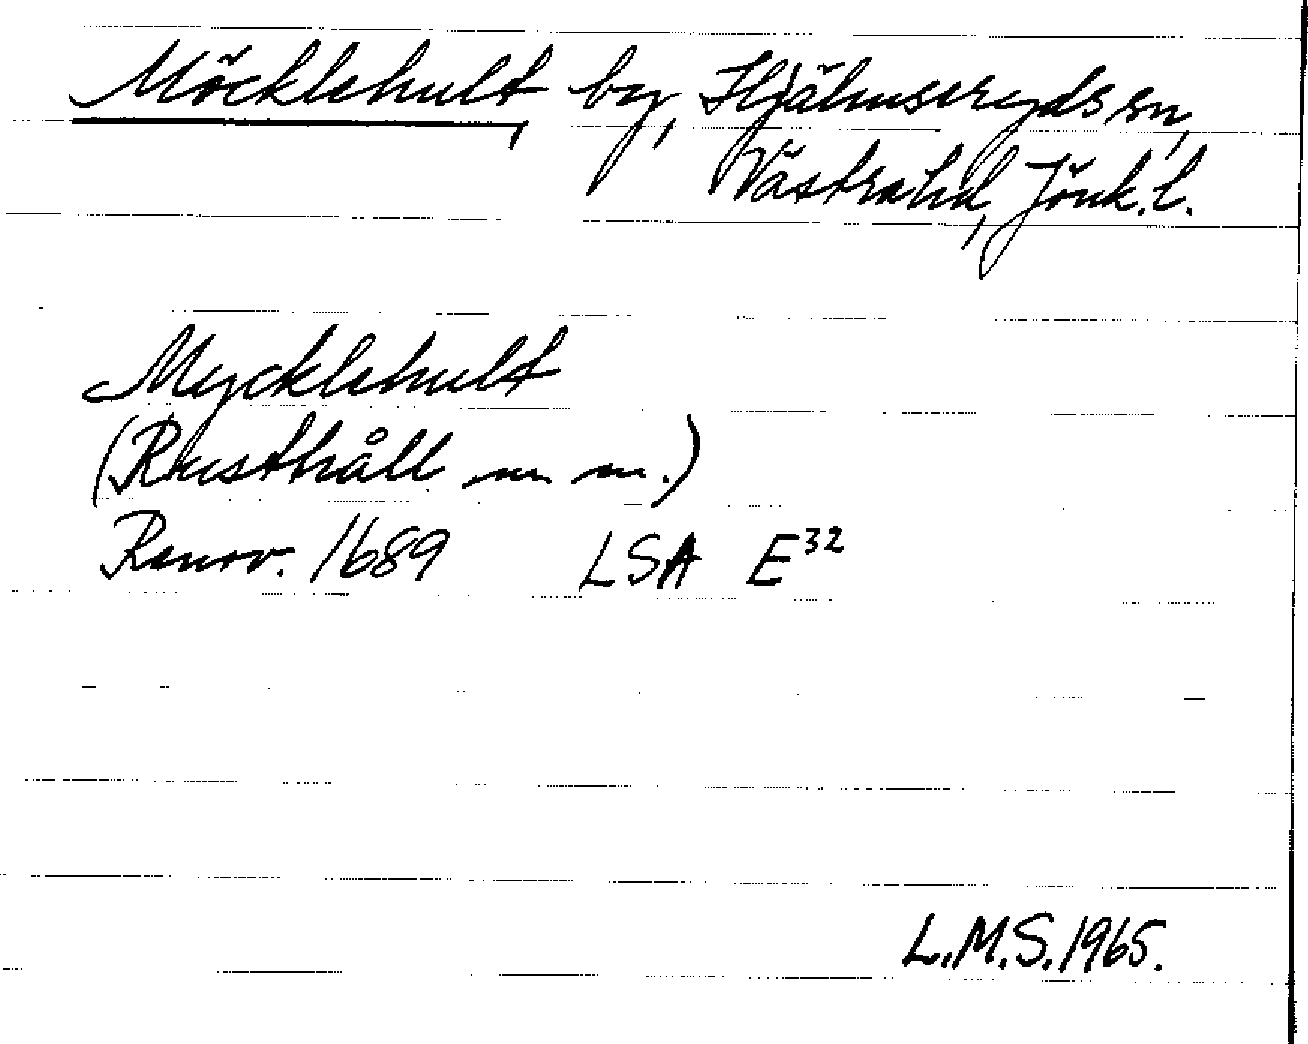 Möcklehult, by, Hjälmseryds sn,
Västra hd, Jönk. l.
Mycklehult
(Rusthåll m m.)
Renov. 1689 LSA E32
L.M.S. 1965.